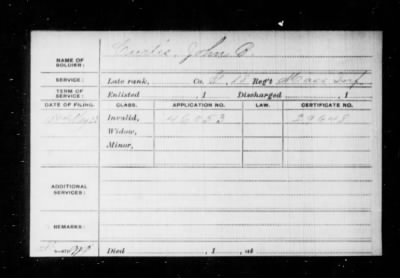 NAME OF SOLDIER: Curtis, John
SERVICE: Late rank, Co. Reg't Mass Inf
TERM OF SERVICE: Enlisted , 1 Discharged , 1
DATE OF FILING. CLASS. APPLICATION NO. LAW. CERTIFICATE NO.
Invalid, 46053 29648
Widow,
Minor,
ADDITIONAL SERVICES:
REMARKS:
Died , 1 , at